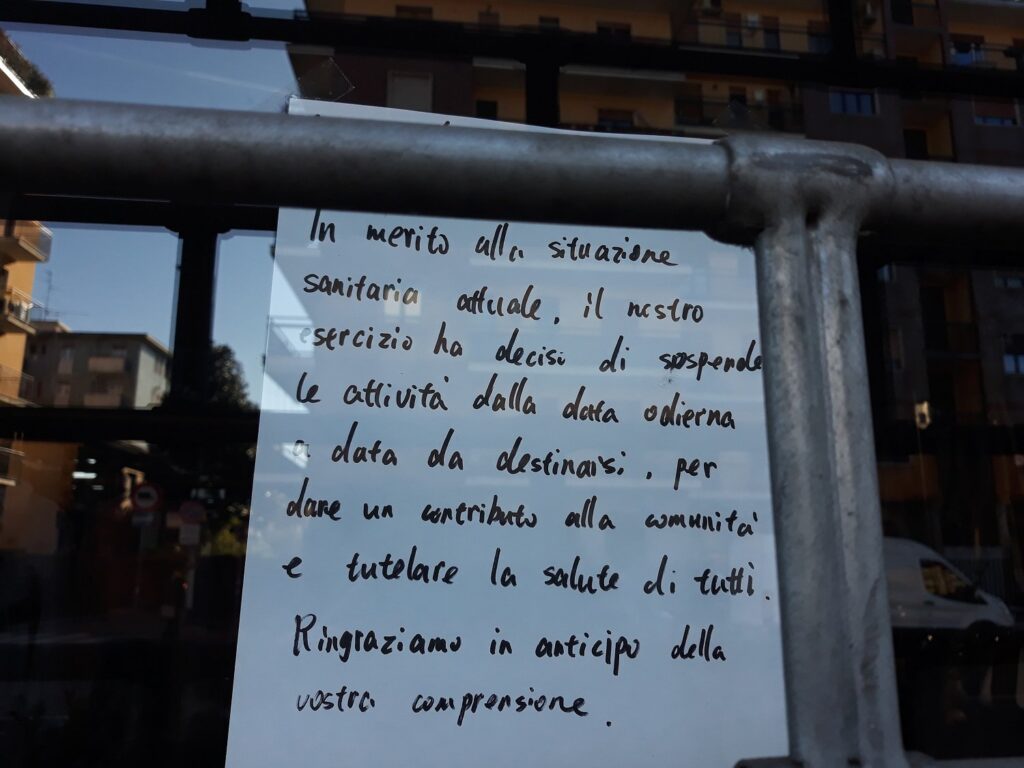 In merito alla situazione
sanitaria attuale, il nostro
esercizio ha deciso di sospende
le attività dalla data odierna
a data da destinarsi, per
dare un contributo alla comunità
e tutelare la salute di tutti.
Ringraziamo in anticipo della
vostra comprensione.